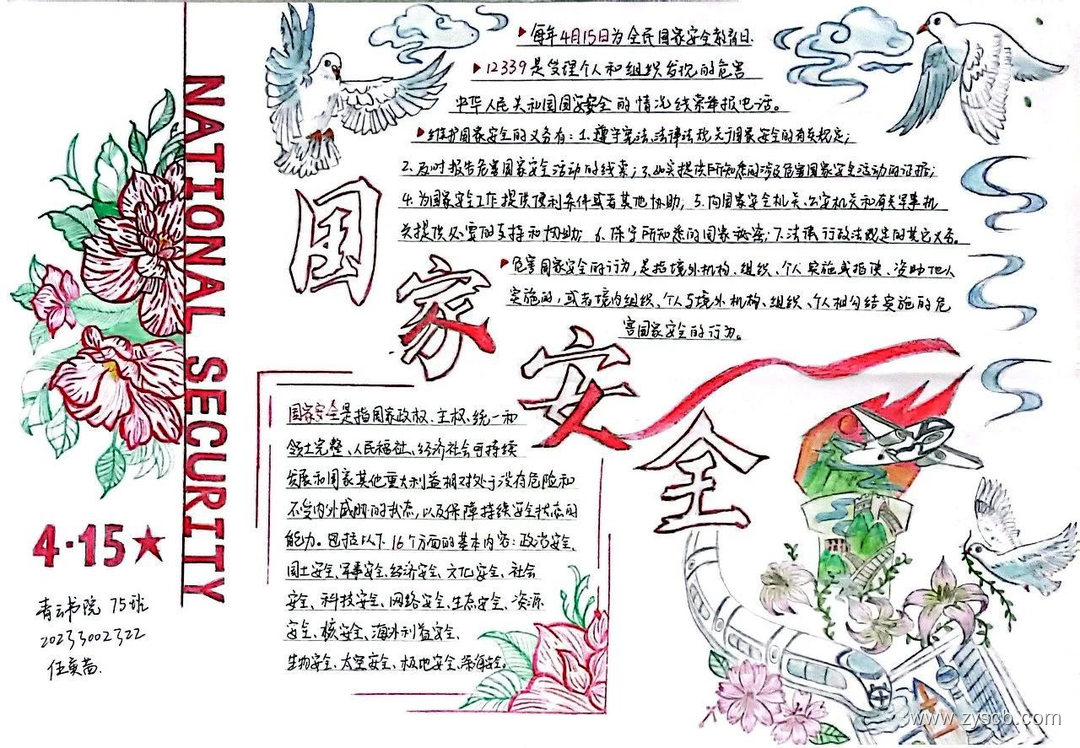 NATIONAL SECURITY
4·15★
青云书院 75班
20233002322
国家安全
每年4月15日为全民国家安全教育日.
12339是受理个人和组织发现的危害
中华人民共和国国家安全的情况线索举报电话。
维护国家安全的义务有:1.遵守宪法、法律法规关于国家安全的有关规定;
2.及时报告危害国家安全活动的线索;3.如实提供所知悉的涉及危害国家安全活动的证据;
4.为国家安全工作提供便利条件或者其他协助;5.向国家安全机关、公安机关和有关军事机
关提供必要的支持和协助;6.保守所知悉的国家秘密;7.法律行政法规定的其它义务。
危害国家安全的行为,是指境外机构、组织、个人实施或指使、资助他人
实施的,或者境内组织、个人与境外机构、组织、个人相勾结实施的危
害国家安全的行为。
国家安全是指国家政权、主权、统一和
领土完整、人民福祉、经济社会可持续
发展和国家其他重大利益相对处于没有危险和
不受内外威胁的状态,以及保障持续安全状态的
能力。包括以下16个方面的基本内容:政治安全、
国土安全、军事安全、经济安全、文化安全、社会
安全、科技安全、网络安全、生态安全、资源
安全、核安全、海外利益安全、
生物安全、太空安全、极地安全、深海安全。
www.zyscb.com